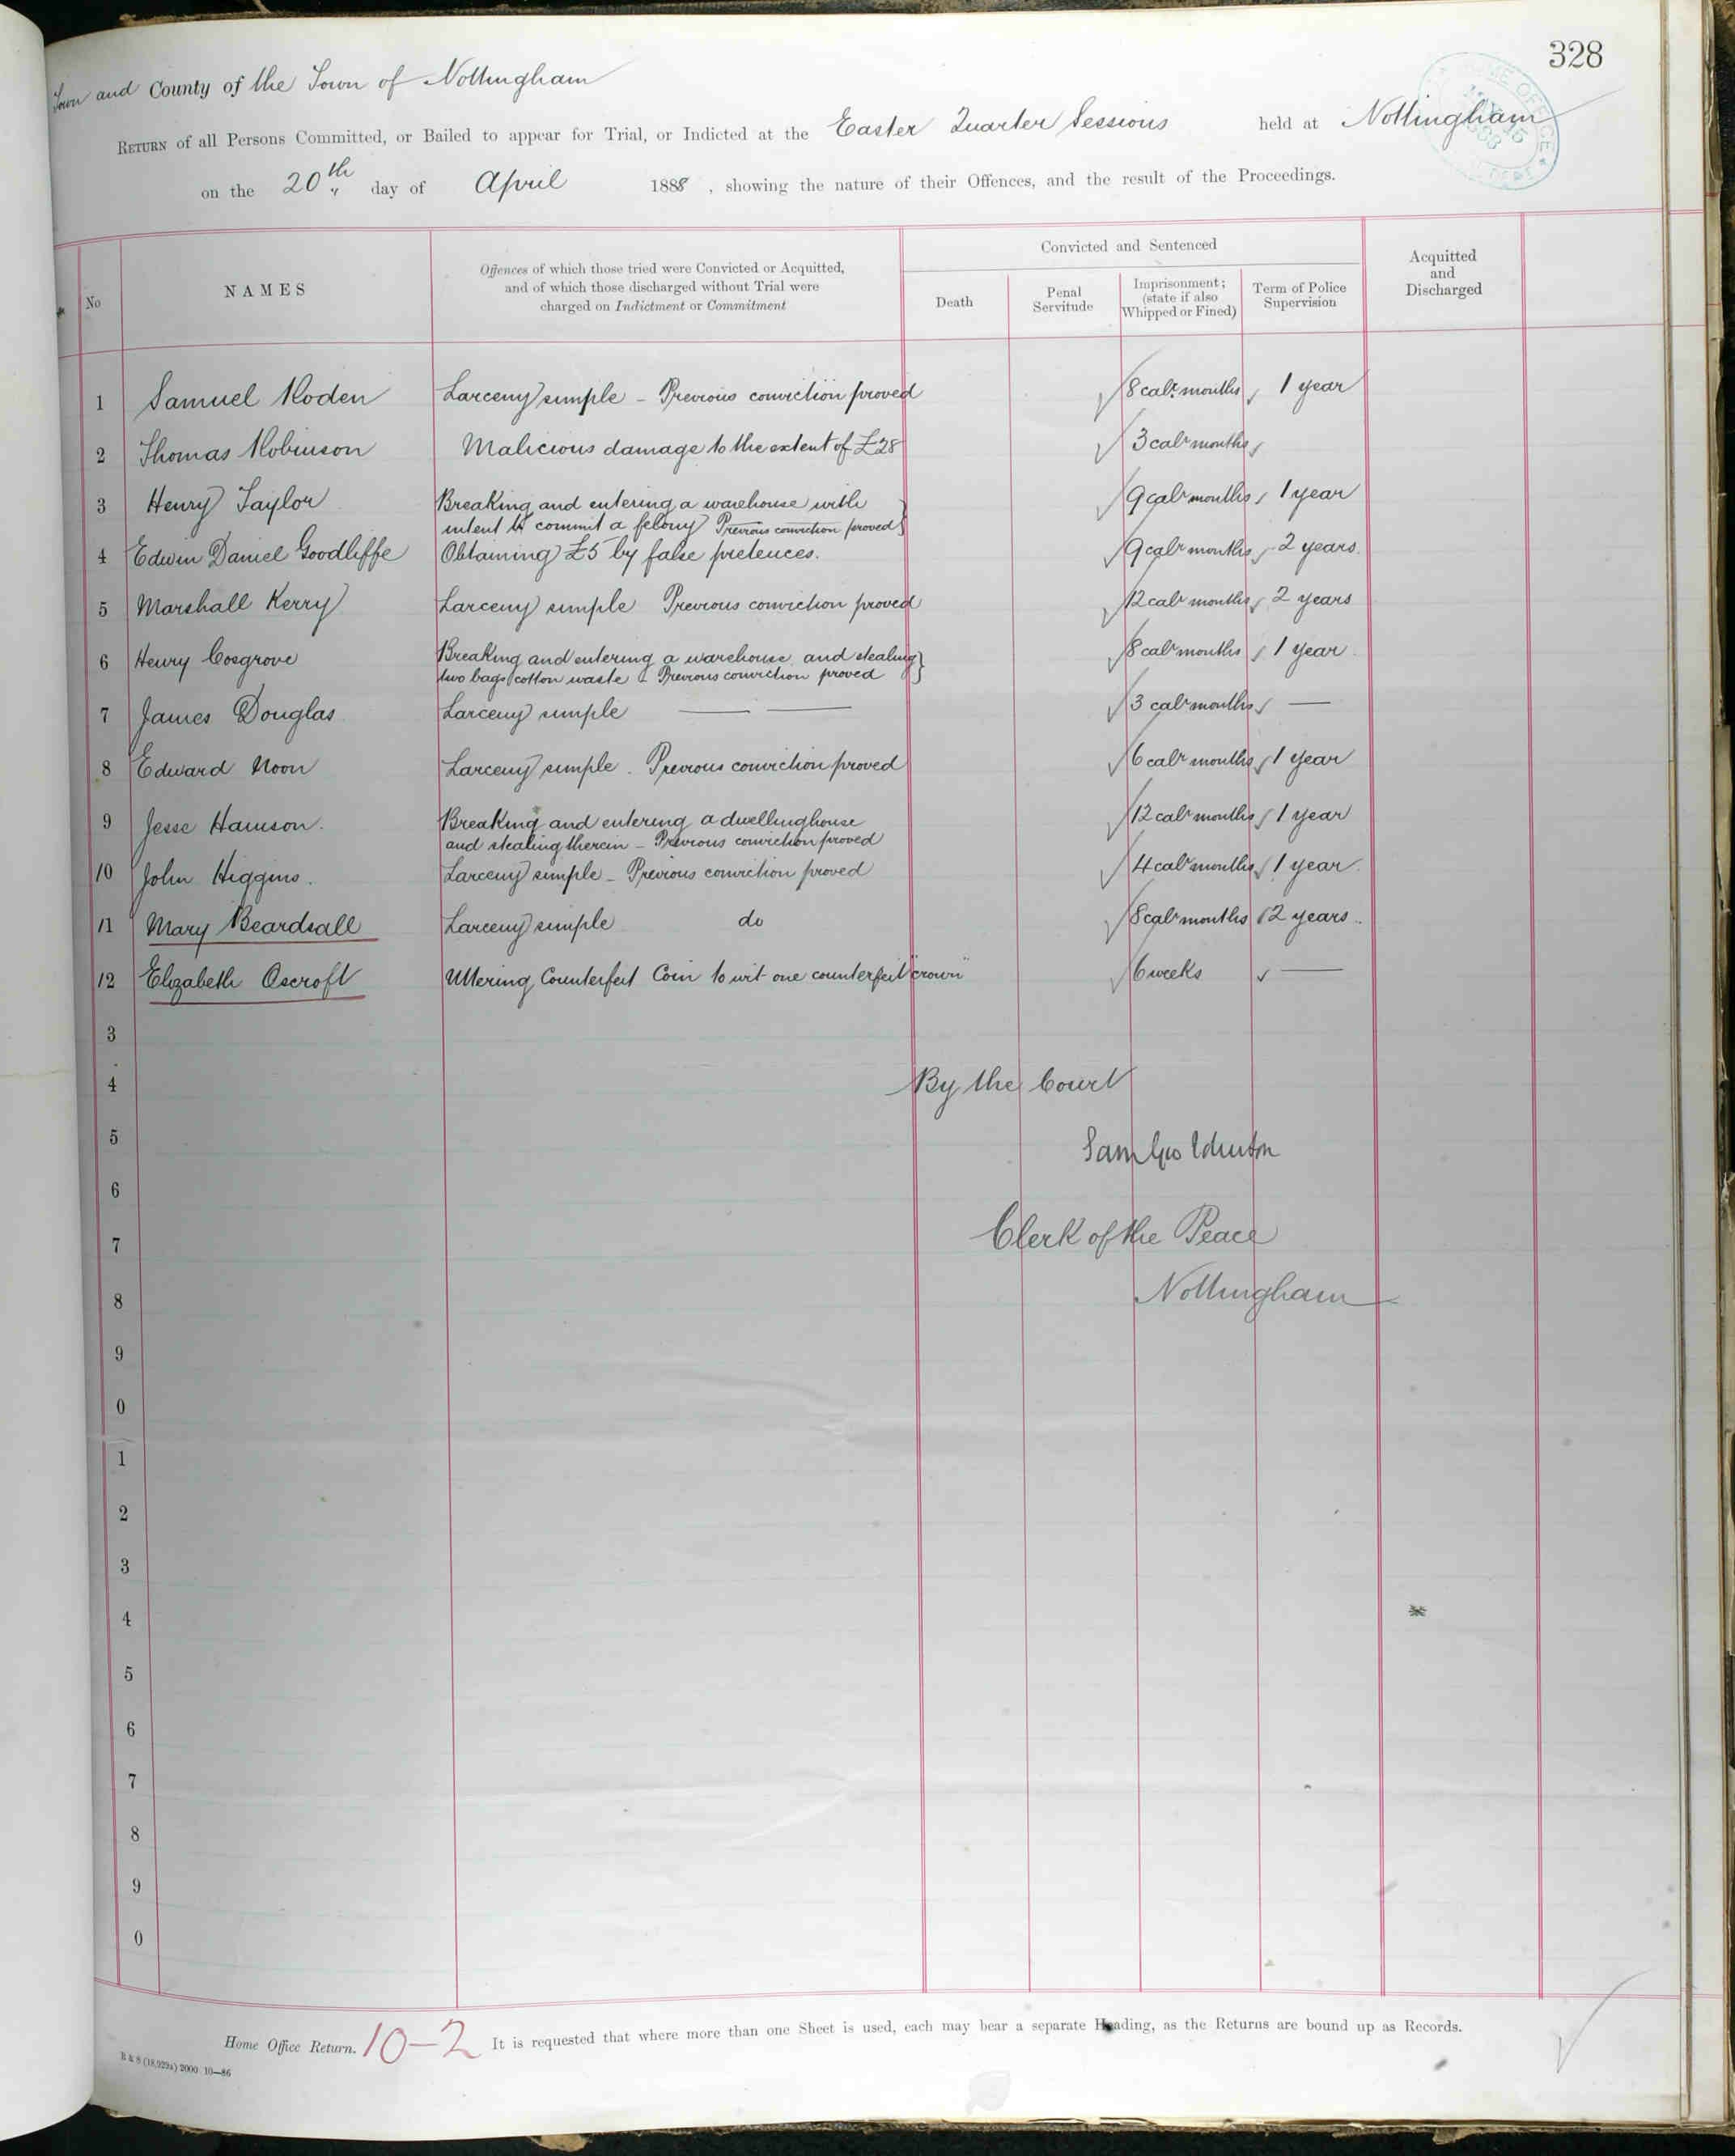 328
Town and County of the Town of Nottingham
RETURN of all Persons Committed, or Bailed to appear for Trial, or Indicted at the Easter Quarter Sessions held at Nottingham
on the 20th day of April 1888, showing the nature of their Offences, and the result of the Proceedings.
No
NAMES
Offences of which those tried were Convicted or Acquitted,
and of which those discharged without Trial were
charged on Indictment or Commitment
Convicted and Sentenced
Death
Penal
Servitude
Imprisonment;
(state if also
Whipped or Fined)
Term of Police
Supervision
Acquitted
and
Discharged
1 Samuel Roden Larceny simple - Previous conviction proved 8 calr months 1 year
2 Thomas Robinson Malicious damage to the extent of £28 3 calr months
3 Henry Taylor Breaking and entering a warehouse with 9 calr months 1 year
intent to commit a felony Previous conviction proved
4 Edwin Daniel Goodliffe Obtaining £5 by false pretences. 9 calr months 2 years.
5 Marshall Kerry Larceny simple Previous conviction proved 12 calr months 2 years
6 Henry Cosgrove Breaking and entering a warehouse and stealing 8 calr months 1 year
two bags cotton waste - Previous conviction proved
7 James Douglas Larceny simple — — 3 calr months —
8 Edward Noon Larceny simple. Previous conviction proved 6 calr months 1 year
9 Jesse Harrison. Breaking and entering a dwellinghouse 12 calr months 1 year
and stealing therein - Previous conviction proved
10 John Higgins. Larceny simple - Previous conviction proved 4 calr months 1 year.
11 Mary Beardsall Larceny simple do 8 calr months 2 years..
12 Elizabeth Oscroft Uttering Counterfeit Coin to wit one counterfeit "crown" 6 weeks —
3
4 By the Court
5 Sam Geo Johnson
6
7 Clerk of the Peace
8 Nottingham
9
0
1
2
3
4
5
6
7
8
9
0
Home Office Return. 10-2 It is requested that where more than one Sheet is used, each may bear a separate Heading, as the Returns are bound up as Records.
B & S (18,929a) 2000 10—86